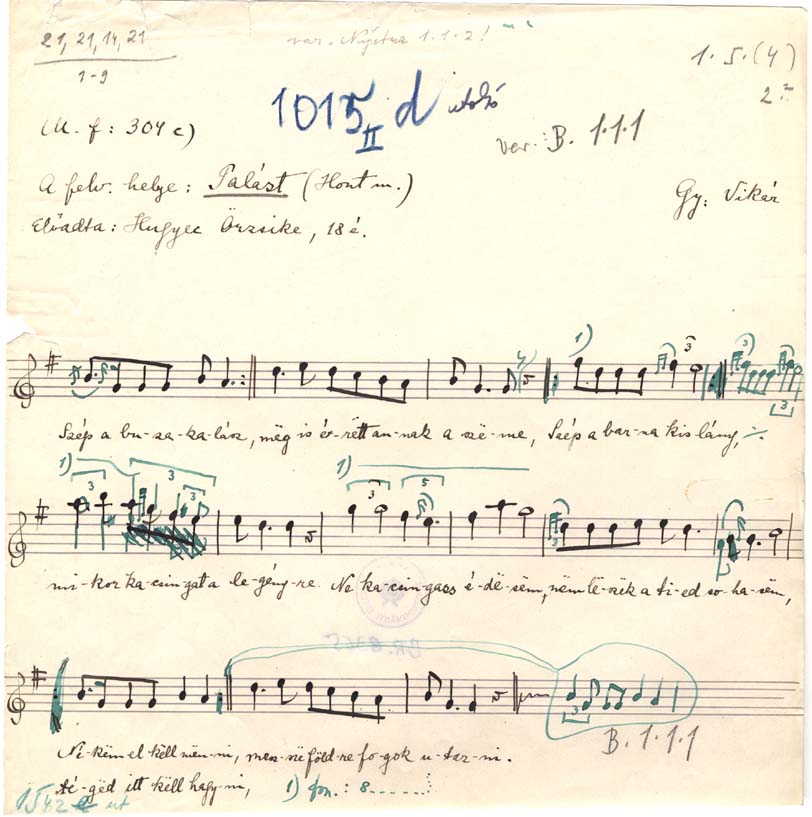 21, 21, 14, 21
1-9
var. Nyitra 1.1.2!
1. 5. (4)
1015 d utolsó
II
var. B. 1.1.1
M. f: 304 c)
A felv. helye: Palást (Hont m.)
Gy: Vikár
Előadta: Hugyec Örzsike, 18 é.
1)
3
3
3
Szép a bu-za-ka-lász, még is ér-rëtt an-nak a szë-me, Szép a bar-na kis lány,
1)
3
3
1)
3
5
mi-kor ka-csin-gat a le-gény-re. Ne ka-csin-gass é-dë-sëm, nëm lë-szëk a ti-ed so-ha-sëm,
BR. 8365
3
B. 1.1.1
Ne-këm el këll mën-ni, mes-sze föld-re fo-gok u-taz-ni.
té-gëd itt këll hagy-ni,
1) fon.: 8